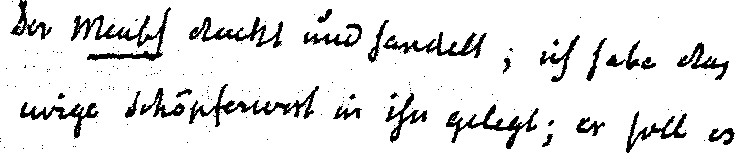 Der Mensch denkt und handelt; ich habe das
ewige Schöpferwort in ihn gelegt; er soll es